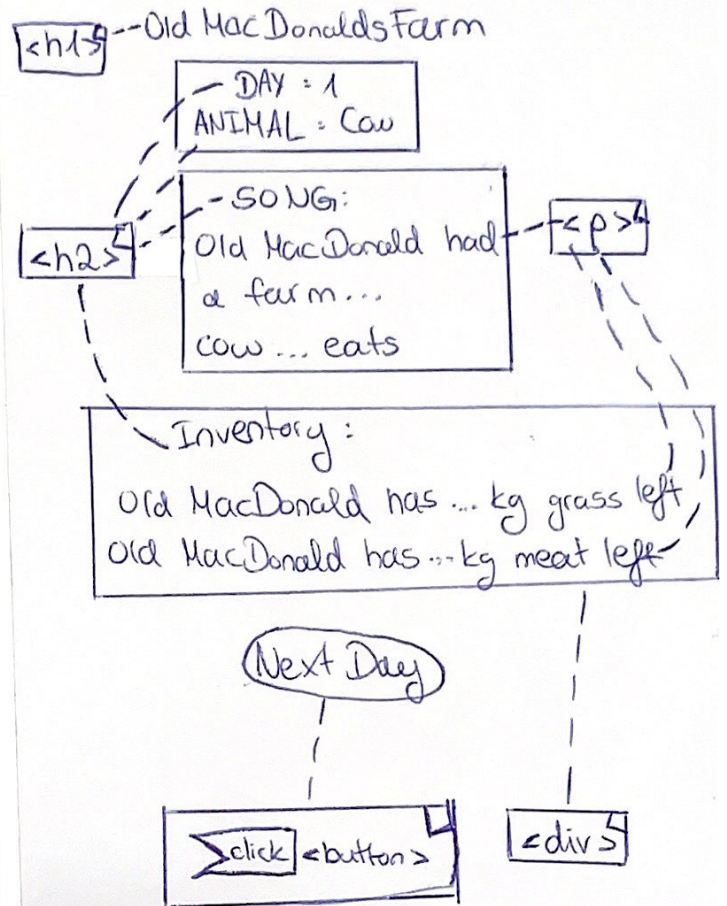 <h1> Old MacDonaldsFarm
DAY = 1
ANIMAL = Cow
<h2>
SONG:
Old MacDonald had
a farm...
cow... eats
<p>
Inventory:
Old MacDonald has ... kg grass left
Old MacDonald has ... kg meat left
Next Day
click <button>
<div>